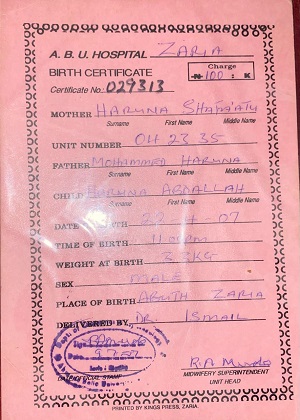 A.B.U. HOSPITAL ZARIA
BIRTH CERTIFICATE
Charge
-N- 100 : K
Certificate No: 029313
MOTHER HARUNA SHAFA'ATU
Surname First Name Middle Name
UNIT NUMBER OH 23 35
FATHER MOHAMMED HARUNA
Surname First Name Middle Name
CHILD HARUNA ABDALLAH
Surname First Name Middle Name
DATE BIRTH 22 07
TIME OF BIRTH
WEIGHT AT BIRTH KG
SEX MALE
PLACE OF BIRTH ABUTH ZARIA
DELIVERED BY DR. ISMAIL
Dept. of
DATE/OFFICIAL STAMP
MIDWIFERY SUPERINTENDENT
UNIT HEAD
PRINTED BY KINGS PRESS, ZARIA.